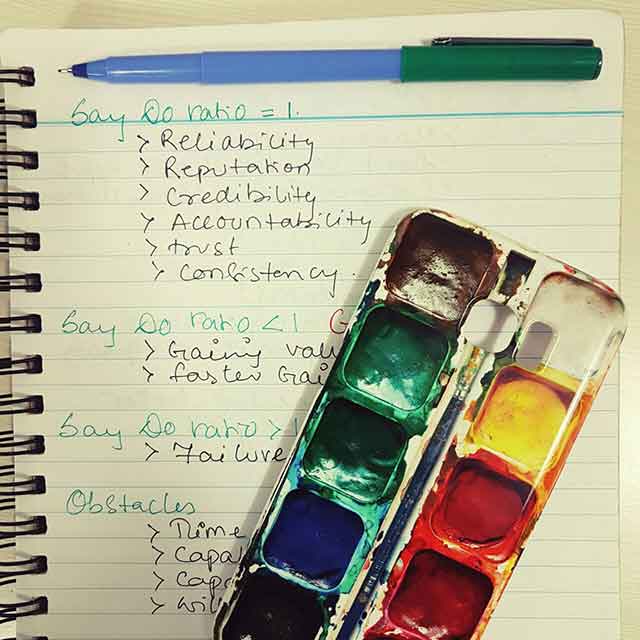 Say Do ratio = 1.
> Reliability
> Reputation
> Credibility
> Accountability
> trust
> Consistency.
Say Do ratio < 1
> Gaining
> faster
Say Do ratio > 1
> Failure
Obstacles
> Time